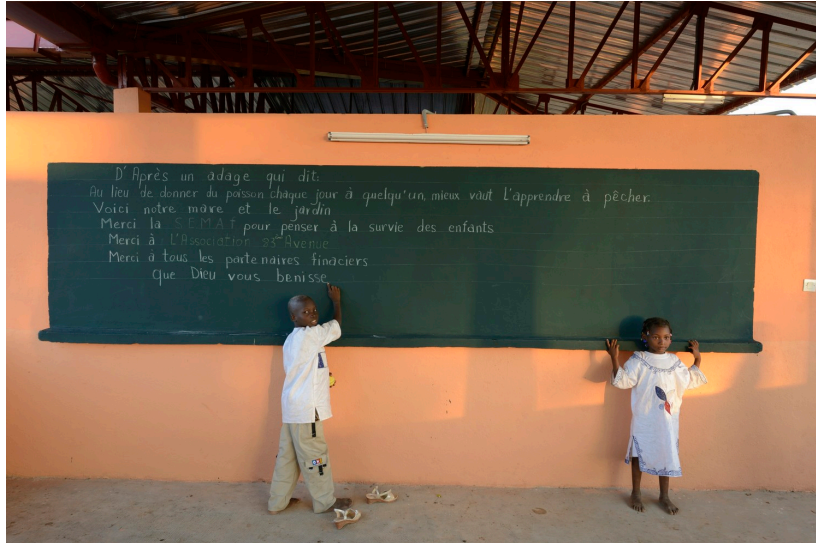 D'Après un adage qui dit:
Au lieu de donner du poisson chaque jour à quelqu'un, mieux vaut l'apprendre à pêcher.
Voici notre mare et le jardin
Merci la SEMAF pour penser à la survie des enfants
Merci à l'Association 25e Avenue
Merci à tous les partenaires finaciers
que Dieu vous benisse